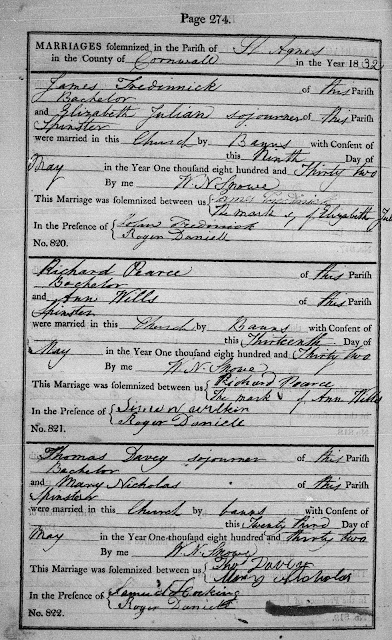 Page 274.
MARRIAGES solemnized in the Parish of St Agnes
in the County of Cornwall in the Year 1832
James Tredinnick of this Parish
Bachelor
and Elizabeth Julian sojourner of this Parish
Spinster
were married in this Church by Banns with Consent of
this Ninth Day of
May in the Year One thousand eight hundred and Thirty two
By me W. N.
This Marriage was solemnized between us { James Tredinnick
The mark of Elizabeth Jul
In the Presence of { John Tredinnick
Roger Daniell
No. 820.
Richard Pearce of this Parish
Bachelor
and Ann Wills of this Parish
Spinster
were married in this Church by Banns with Consent of
this Thirteenth Day of
May in the Year One thousand eight hundred and Thirty two
By me W. N.
This Marriage was solemnized between us { Richard Pearce
The mark of Ann Wills
In the Presence of {
Roger Daniell
No. 821.
Thomas Davey sojourner of this Parish
Bachelor
and Mary Nicholas of this Parish
Spinster
were married in this Church by banns with Consent of
this Twenty third Day of
May in the Year One thousand eight hundred and thirty two
By me W. N.
This Marriage was solemnized between us { Thos Davey
Mary Nicholas
In the Presence of { Samuel Hocking
Roger Daniell
No. 822.